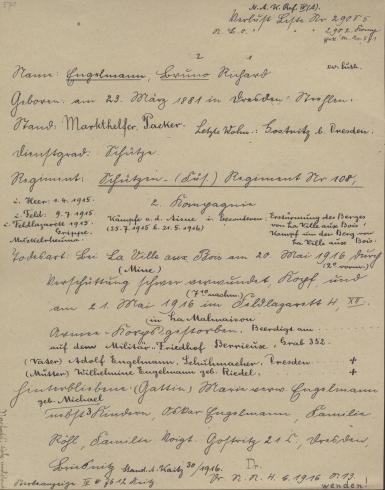 N.A.W. Ref. IV(A).
Verlust Liste Nr 29055
2902
2 1
Name: Engelmann, Bruno Richard ev. luth.
Geboren: am 23. März 1881 in Dresden-Strehlen.
Stand: Markthelfer, Packer. Letzte Wohn.: Gostritz b. Dresden.
Dienstgrad: Schütze
Regiment: Schützen (Füs.) Regiment Nr 108,
i. Heer: 1.4.1915. 2. Kompagnie
i. Feld: 9.7.1915 Kämpfe a. d. Aisne Erstürmung des Berges
i. Feldlazarett 1915. (25.7.1915 b. 21.5.1916) von La Ville aux Bois
Grippe. Kampf um den Berg von
Muskelrheuma. La Ville aux Bois.
Todesart: Bei La Ville aux Bois am 20. Mai 1916 durch
(Mine) (12° vorm.)
Verschüttung schwer verwundet, Kopf und
(7° nachm.)
am 21. Mai 1916 im Feldlazarett 4. XII.
(in La Malmaison
Armee-Korps gestorben. Beerdigt am
auf dem Militär-Friedhof Grab 352.
(Vater) Adolf Engelmann, Schuhmacher, Dresden +
(Mutter) Wilhelmine Engelmann geb. Riedel. +
Hinterbliebene: (Gattin) Marie verw. Engelmann
geb. Michael
nebst 3 Kindern, Oskar Engelmann, Familie
Familie Voigt. Gostritz 21 b, Dresden,
Stand. A. Kaitz 30/1916. Dr.
Dr. N. N. 4.6.1916 N. 13.
wenden!